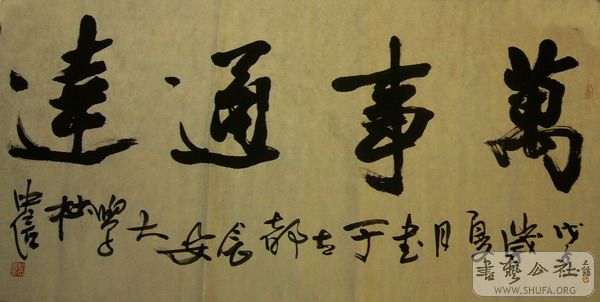 萬事通達
戊子歲夏月书于古都长安大學
書藝公社
WWW.SHUFA.ORG